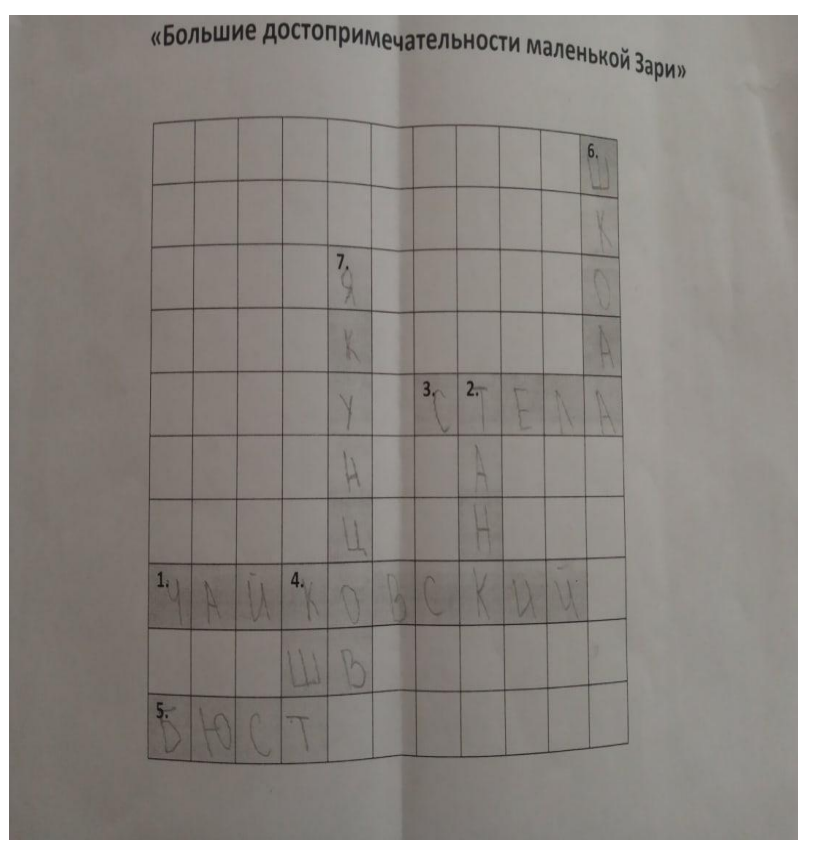 «Большие достопримечательности маленькой Зари»
6. Ш
К
7. Я О
К А
У 3. С 2. Т Е Л А
Н А
Ц Н
1. Ч А Й 4. К О В С К И Й
Ш В
5. Б Ю С Т